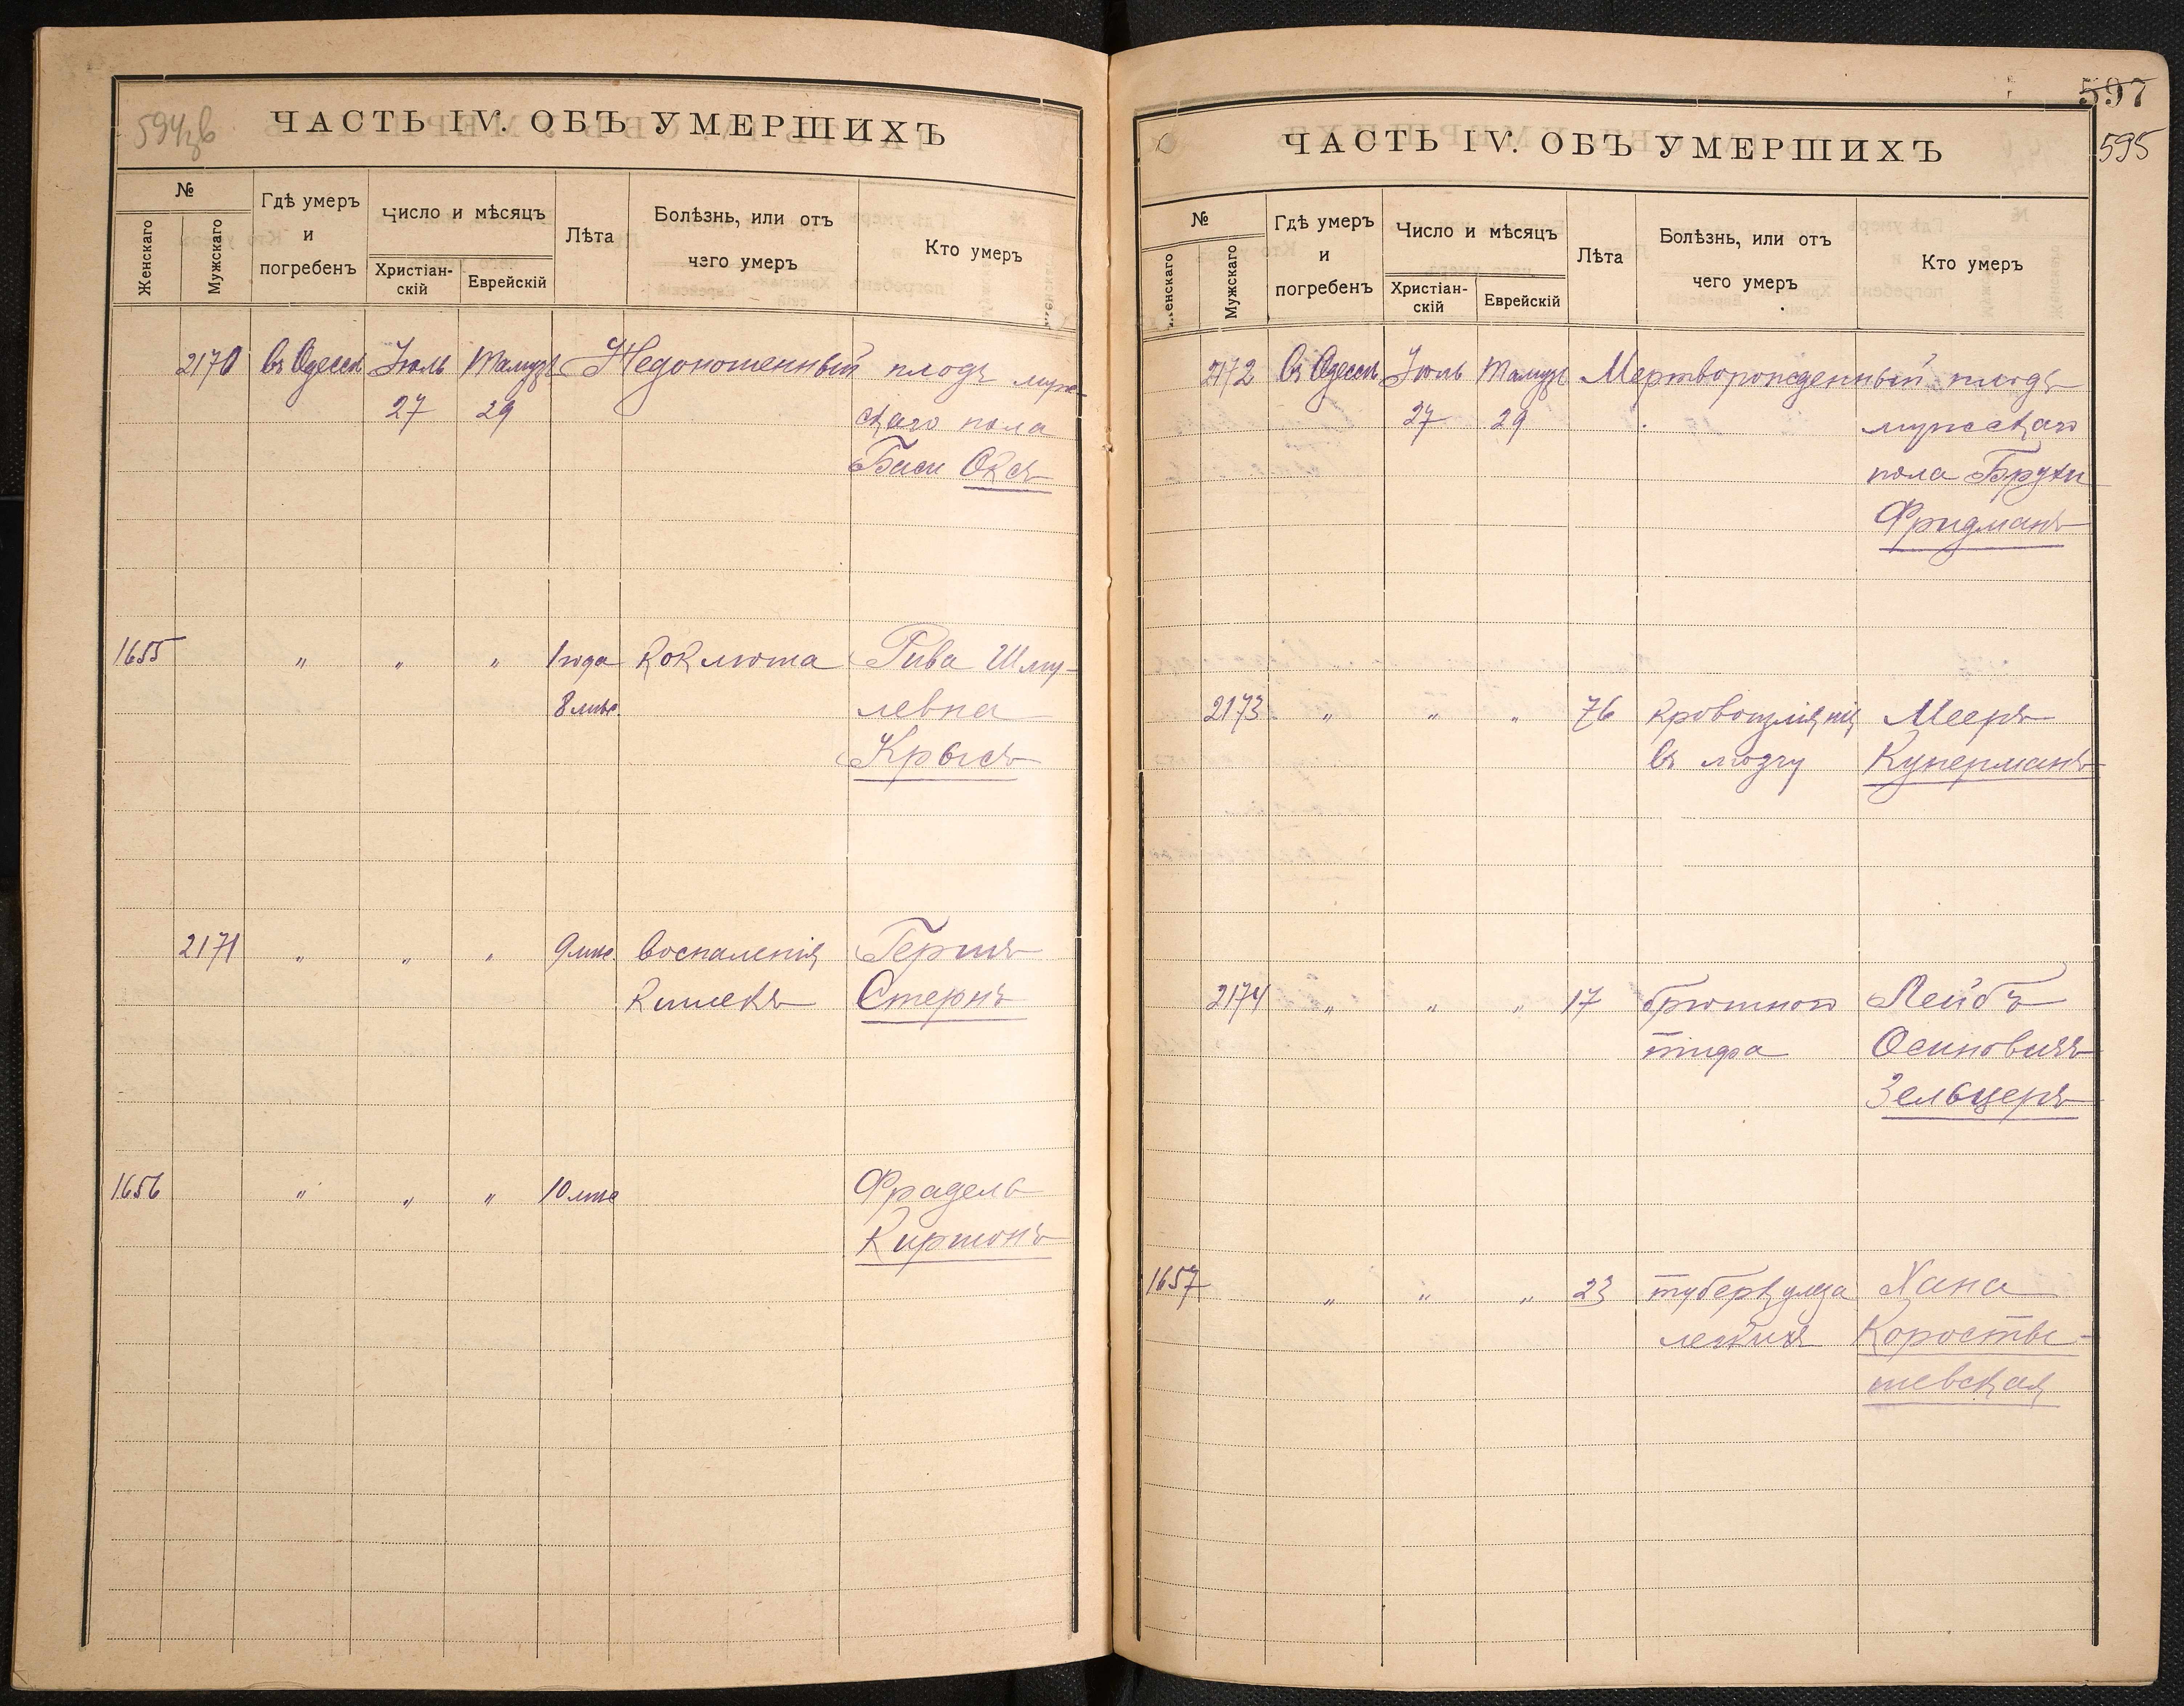 594зв
ЧАСТЬ IV. ОБЪ УМЕРШИХЪ
№
Женскаго
Мужскаго
Гдѣ умеръ
и
погребенъ
Число и мѣсяцъ
Христіан-
скій
Еврейскій
Лѣта
Болѣзнь, или отъ
чего умеръ
Кто умеръ
2170 въ Одессѣ Іюль Тамузъ Недоношенный плодъ муж-
27 29 скаго пола
Баси Оксъ
1655 " " " 1 года коклюша Рива Шму-
8 мѣс. левна
Крысъ
2171 " " " 9 мѣс. воспаленія Гершъ
кишекъ Стернъ
1656 " " " 10 мѣс Фрадель
Киршонъ
597
595
ЧАСТЬ IV. ОБЪ УМЕРШИХЪ
№
Женскаго
Мужскаго
Гдѣ умеръ
и
погребенъ
Число и мѣсяцъ
Христіан-
скій
Еврейскій
Лѣта
Болѣзнь, или отъ
чего умеръ
Кто умеръ
2172 Въ Одессѣ Іюль Тамузъ Мертворожденный плодъ
27 29 мужскаго
пола Брухи
Фридманъ
2173 " " " 76 кровоизліянія Мееръ
въ мозгу Куперманъ
2174 " " " 17 брюшного Лейбъ
тифа Осиповичъ
Зельцеръ
1657 " " " 23 туберкулеза Хана
легкихъ Коросты-
шевская